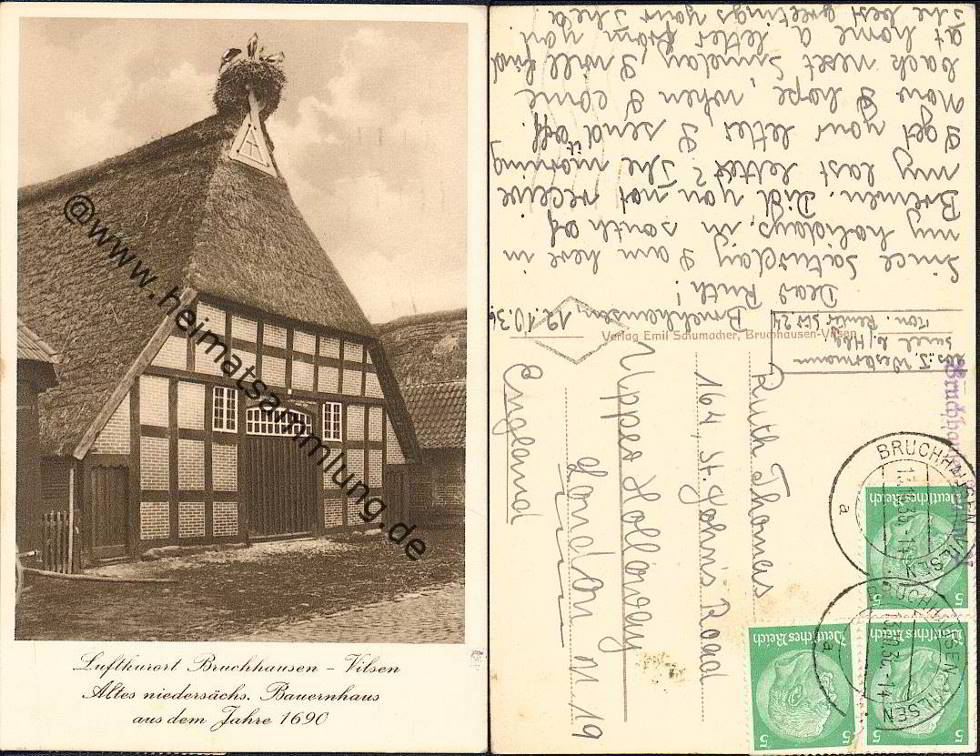 @www.heimatsammlung.de
Luftkurort Bruchhausen – Vilsen
Altes niedersächs. Bauernhaus
aus dem Jahre 1690
Bruchhausen, 12.10.36
Dear Ruth!
Since Saturday I am here in
my holidays, in south of
Bremen. Did you not receive
my last letter? The morning
I get your letter I send off.
Now I hope, when I come
back next Sunday, I will find
at home a letter from you.
The best greetings your Thea
Verlag Emil Schumacher, Bruchhausen-Vilsen
Abs. T. Westermann
Ruth Thomas
164, St. John's Road
Upper Holloway
London N. 19
England
BRUCHHAUSEN-VILSEN
a
Deutsches Reich
5 5
BRUCHHAUSEN-VILSEN
a
Deutsches Reich
5 5
Deutsches Reich
5 5